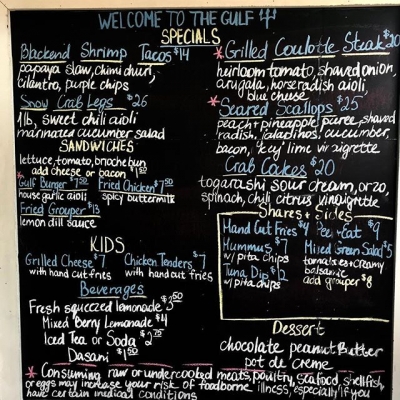 WELCOME TO THE GULF
SPECIALS
Blackend Shrimp Tacos $14
papaya slaw, chimi churi,
cilantro, purple chips
Snow Crab Legs $26
1 lb, sweet chili aioli
marinated cucumber salad
SANDWICHES
lettuce, tomato, brioche bun
add cheese or bacon $1.50
*Gulf Burger $7.50
house garlic aioli
Fried Chicken $7.50
spicy buttermilk
Fried Grouper $13
lemon dill sauce
KIDS
Grilled Cheese $7
with hand cut fries
Chicken Tenders $7
with hand cut fries
Beverages
Fresh squeezed lemonade $3.50
Mixed Berry Lemonade $4
Iced Tea or Soda $2.75
Dasani $1.50
*Grilled Coulotte Steak $20
heirloom tomato, shaved onion,
arugala, horseradish aioli,
blue cheese
*Seared Scallops $25
peach + pineapple puree, shaved
radish, cucumber,
bacon, "key" lime vinaigrette
Crab Cakes $20
togarashi sour cream, orzo,
spinach, chili citrus vinaigrette
Shares + Sides
Hand Cut Fries $4
Peel + Eat $9
Hummus $7
w/ pita chips
Mixed Green Salad $5
tomatoes + creamy
balsamic
add grouper $8
Tuna Dip $12
w/ pita chips
Dessert
chocolate peanut butter
pot de creme
*Consuming raw or undercooked meats, poultry, seafood, shellfish,
or eggs may increase your risk of foodborne illness, especially if you
have certain medical conditions